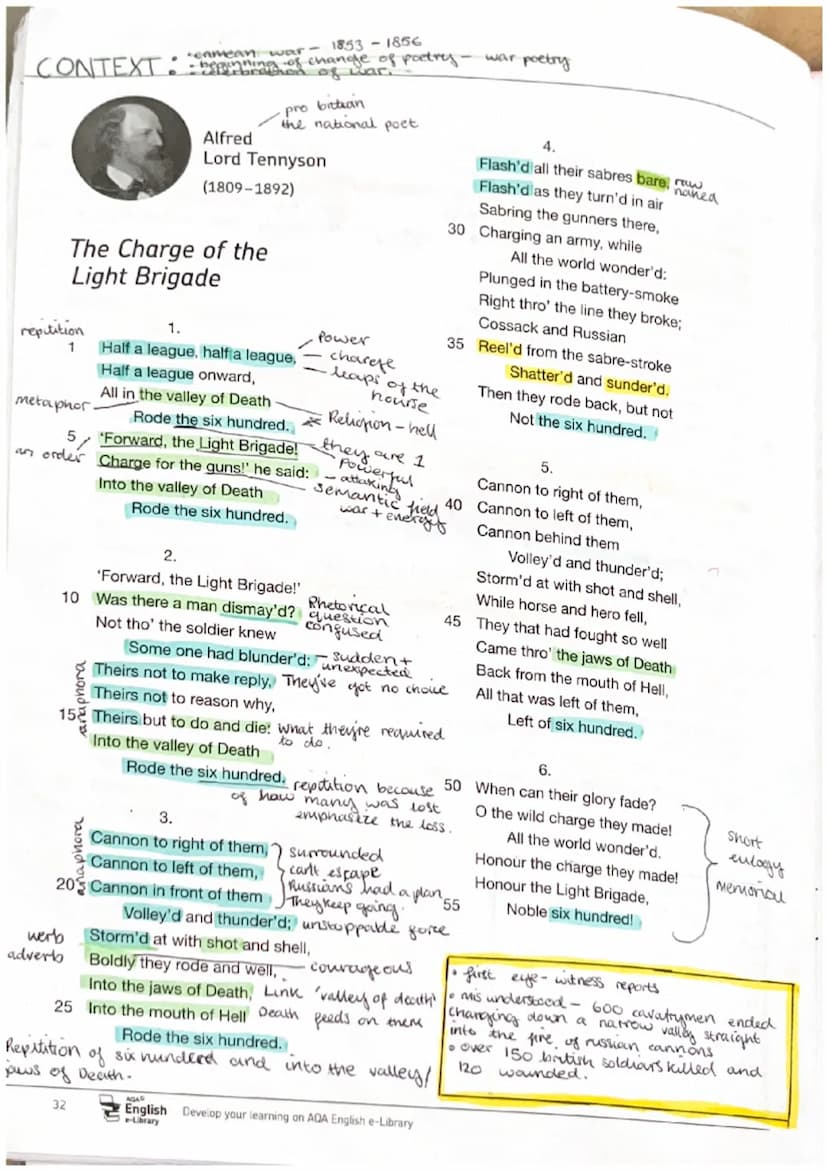 CONTEXT : • crimean war – 1853 – 1856
• beginning of change of poetry – war poetry
• celerbration of war.
pro bitian
the national poet
Alfred
Lord Tennyson
(1809–1892)
The Charge of the
Light Brigade
repitition
1.
1 Half a league, half a league,
Half a league onward,
All in the valley of Death
Rode the six hundred.
5 'Forward, the Light Brigade!
Charge for the guns!' he said:
Into the valley of Death
Rode the six hundred.
Power
– charge
– leaps of the
hourse
metaphor
Religion – hell
they are 1
an order
Powerful
– attaking
semantic field
war + energy
2.
'Forward, the Light Brigade!'
10 Was there a man dismay'd?
Not tho' the soldier knew
Some one had blunder'd:
Theirs not to make reply,
Theirs not to reason why,
15 Theirs but to do and die:
Into the valley of Death
Rode the six hundred.
Rhetorical
question
confused
– sudden +
unexpected
They've got no choice
anaphora
what they're required
to do.
repitition because
of how many was lost
emphasize the loss.
3.
Cannon to right of them,
Cannon to left of them,
20 Cannon in front of them
Volley'd and thunder'd;
Storm'd at with shot and shell,
Boldly they rode and well,
Into the jaws of Death,
25 Into the mouth of Hell
Rode the six hundred.
anaphora
surrounded
cant escape
Russians had a plan
They keep going.
unstoppable force
werb
adverb
courageous
Link 'valley of death'
Death feeds on them
Repitition of six hunderd and into the valley/
jaws of Death.
4.
Flash'd all their sabres bare,
Flash'd as they turn'd in air
Sabring the gunners there,
30 Charging an army, while
All the world wonder'd:
Plunged in the battery-smoke
Right thro' the line they broke;
Cossack and Russian
35 Reel'd from the sabre-stroke
Shatter'd and sunder'd.
Then they rode back, but not
Not the six hundred.
raw
naked
5.
Cannon to right of them,
40 Cannon to left of them,
Cannon behind them
Volley'd and thunder'd;
Storm'd at with shot and shell,
While horse and hero fell,
45 They that had fought so well
Came thro' the jaws of Death
Back from the mouth of Hell,
All that was left of them,
Left of six hundred.
6.
50 When can their glory fade?
O the wild charge they made!
All the world wonder'd.
Honour the charge they made!
Honour the Light Brigade,
55 Noble six hundred!
short
eulogy
memorial
• first eye-witness reports
• misunderstood – 600 cavalrymen ended
charging down a narrow valley straight
into the fire of russian cannons
• over 150 british soldiars killed and
120 wounded.
32
AQA
English
e-Library
Develop your learning on AQA English e-Library